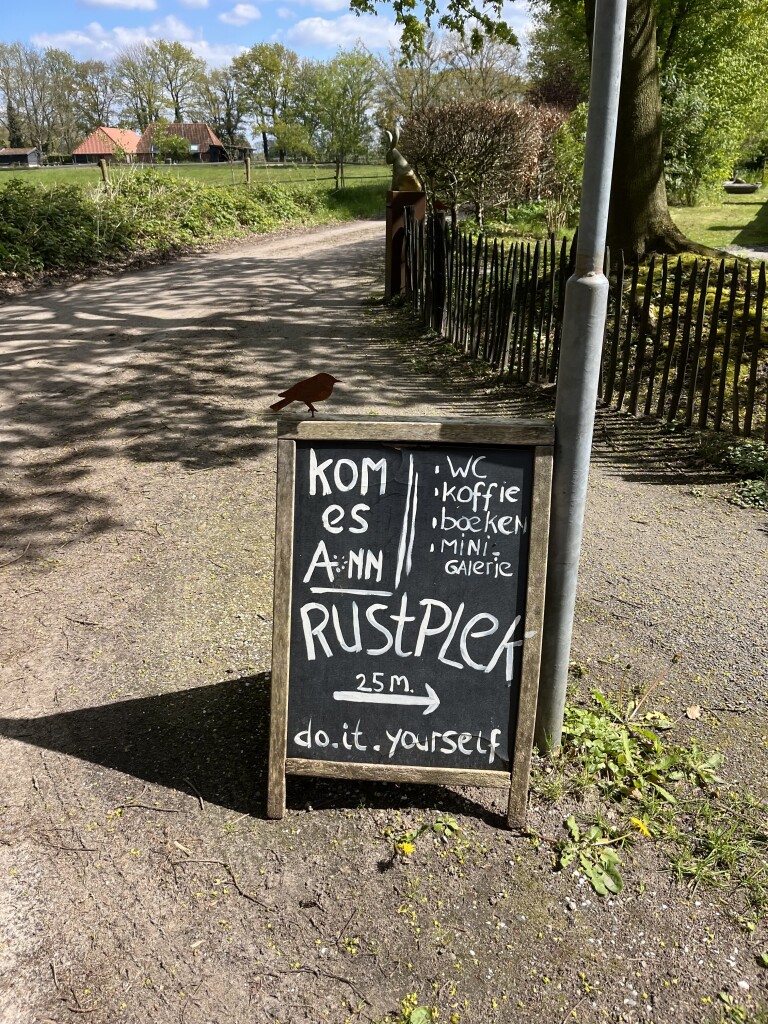 KOM
es
AnNN
• WC
• koffie
• boeken
• MiNi-
GALeRie
RUStPLek
25 M.
do.it.yourself